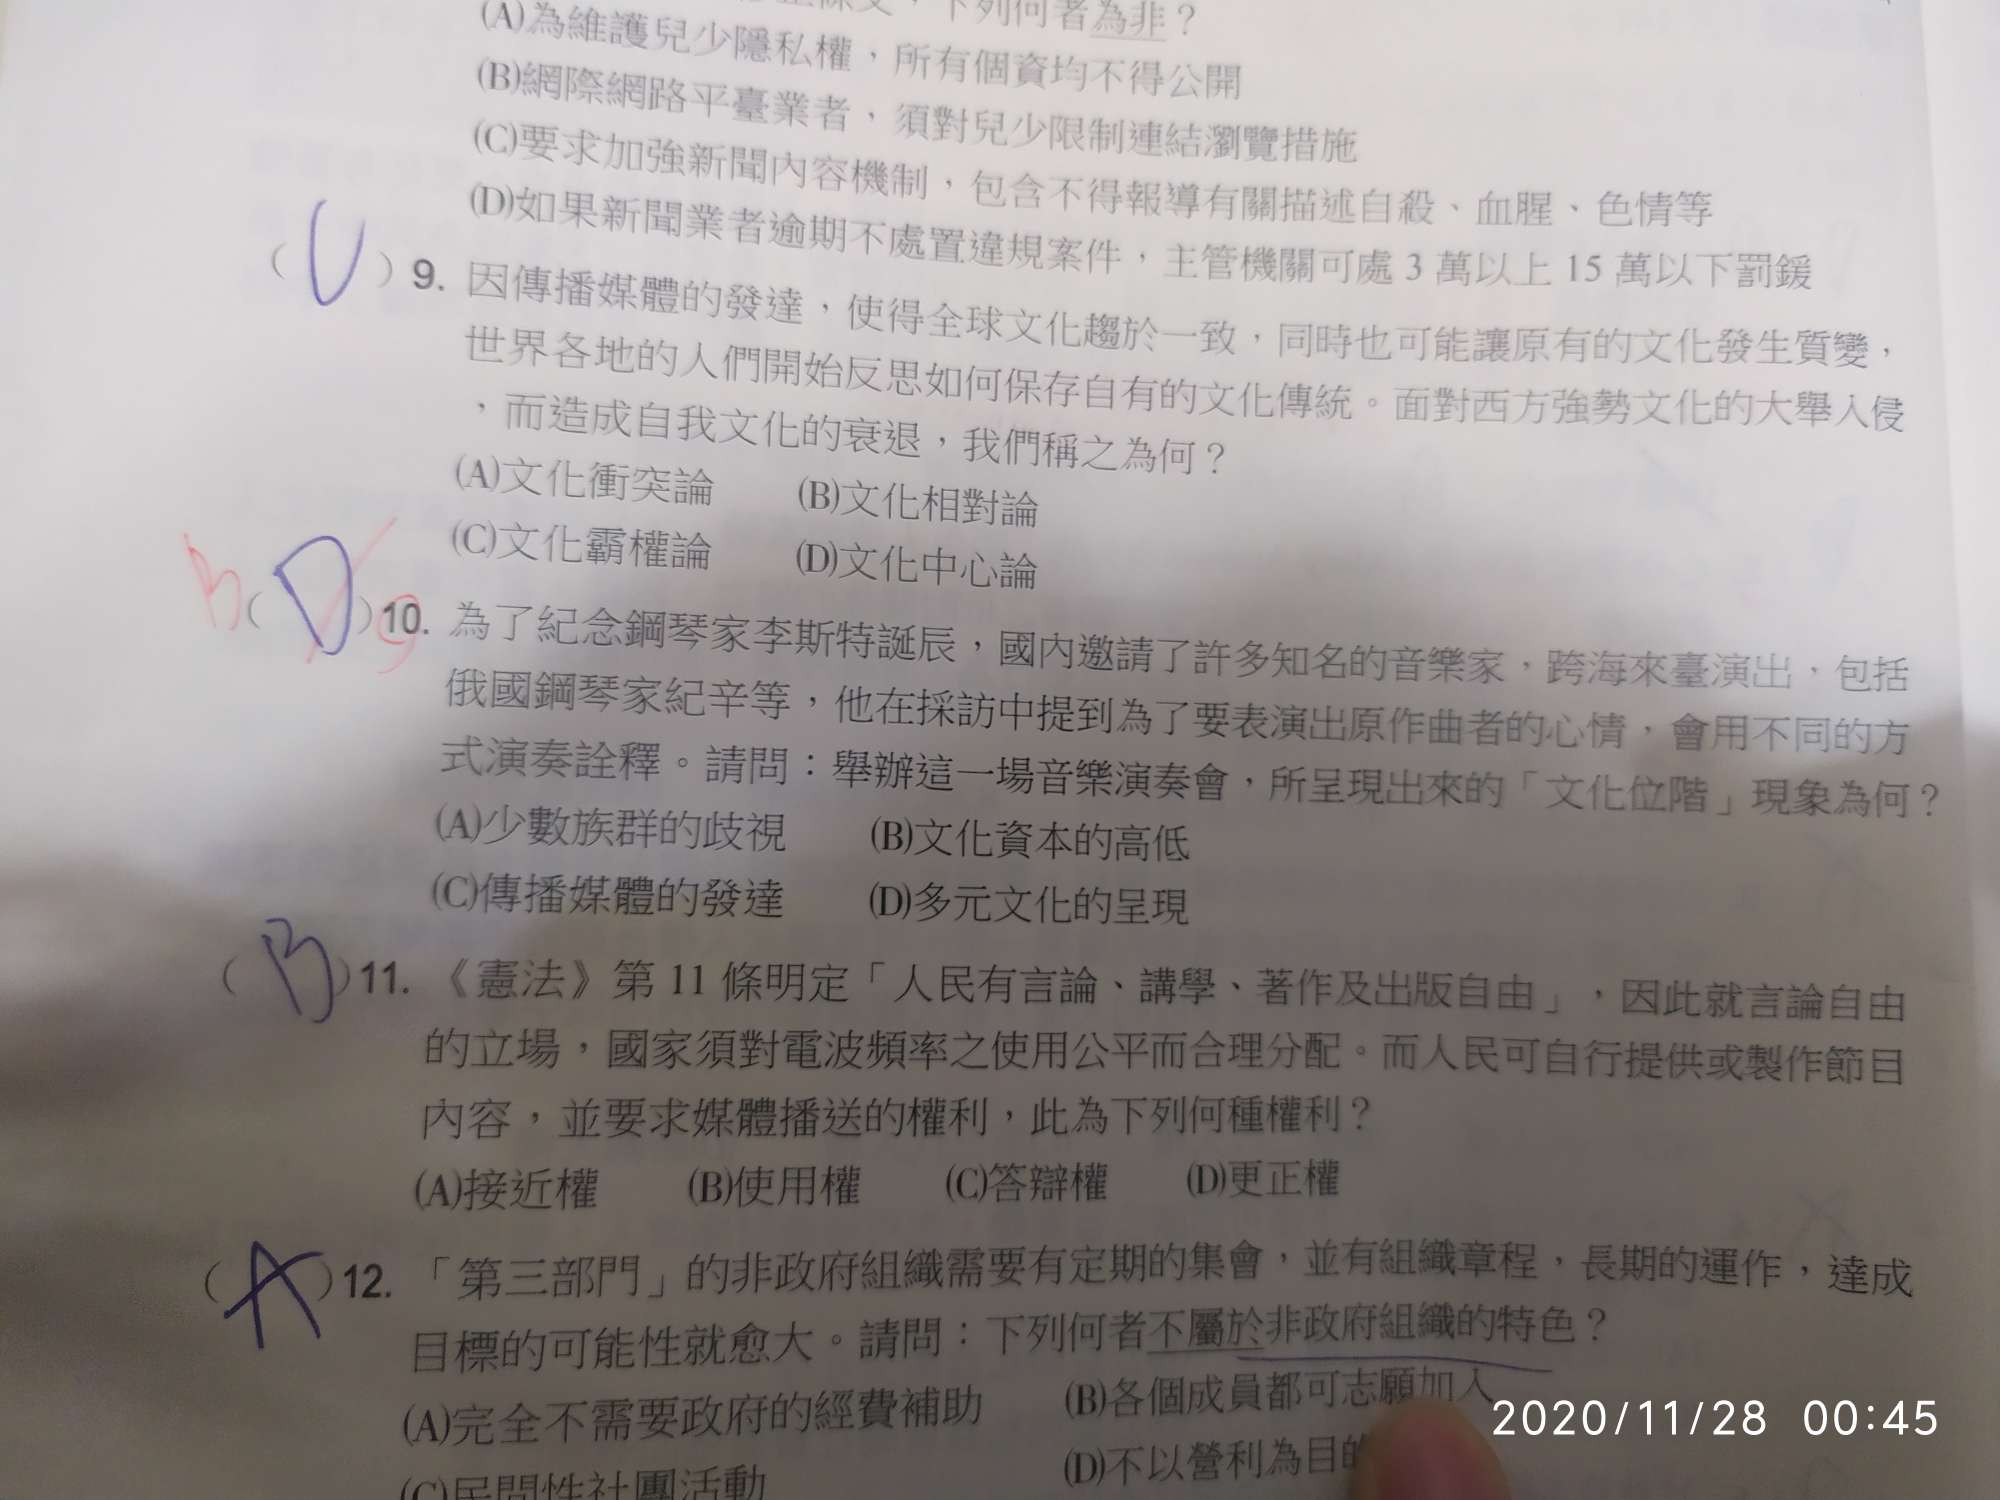 下列何者為非？
(A)為維護兒少隱私權，所有個資均不得公開
(B)網際網路平臺業者，須對兒少限制連結瀏覽措施
(C)要求加強新聞內容機制，包含不得報導有關描述自殺、血腥、色情等
(D)如果新聞業者逾期不處置違規案件，主管機關可處 3 萬以上 15 萬以下罰鍰
( C ) 9. 因傳播媒體的發達，使得全球文化趨於一致，同時也可能讓原有的文化發生質變，
世界各地的人們開始反思如何保存自有的文化傳統。面對西方強勢文化的大舉入侵
，而造成自我文化的衰退，我們稱之為何？
(A)文化衝突論 (B)文化相對論
(C)文化霸權論 (D)文化中心論
B ( D ) 10. 為了紀念鋼琴家李斯特誕辰，國內邀請了許多知名的音樂家，跨海來臺演出，包括
俄國鋼琴家紀辛等，他在採訪中提到為了要表演出原作曲者的心情，會用不同的方
式演奏詮釋。請問：舉辦這一場音樂演奏會，所呈現出來的「文化位階」現象為何？
(A)少數族群的歧視 (B)文化資本的高低
(C)傳播媒體的發達 (D)多元文化的呈現
( B ) 11. 《憲法》第 11 條明定「人民有言論、講學、著作及出版自由」，因此就言論自由
的立場，國家須對電波頻率之使用公平而合理分配。而人民可自行提供或製作節目
內容，並要求媒體播送的權利，此為下列何種權利？
(A)接近權 (B)使用權 (C)答辯權 (D)更正權
( A ) 12. 「第三部門」的非政府組織需要有定期的集會，並有組織章程，長期的運作，達成
目標的可能性就愈大。請問：下列何者不屬於非政府組織的特色？
(A)完全不需要政府的經費補助 (B)各個成員都可志願加入
(C)民間性社團活動 (D)不以營利為目的
2020/11/28 00:45